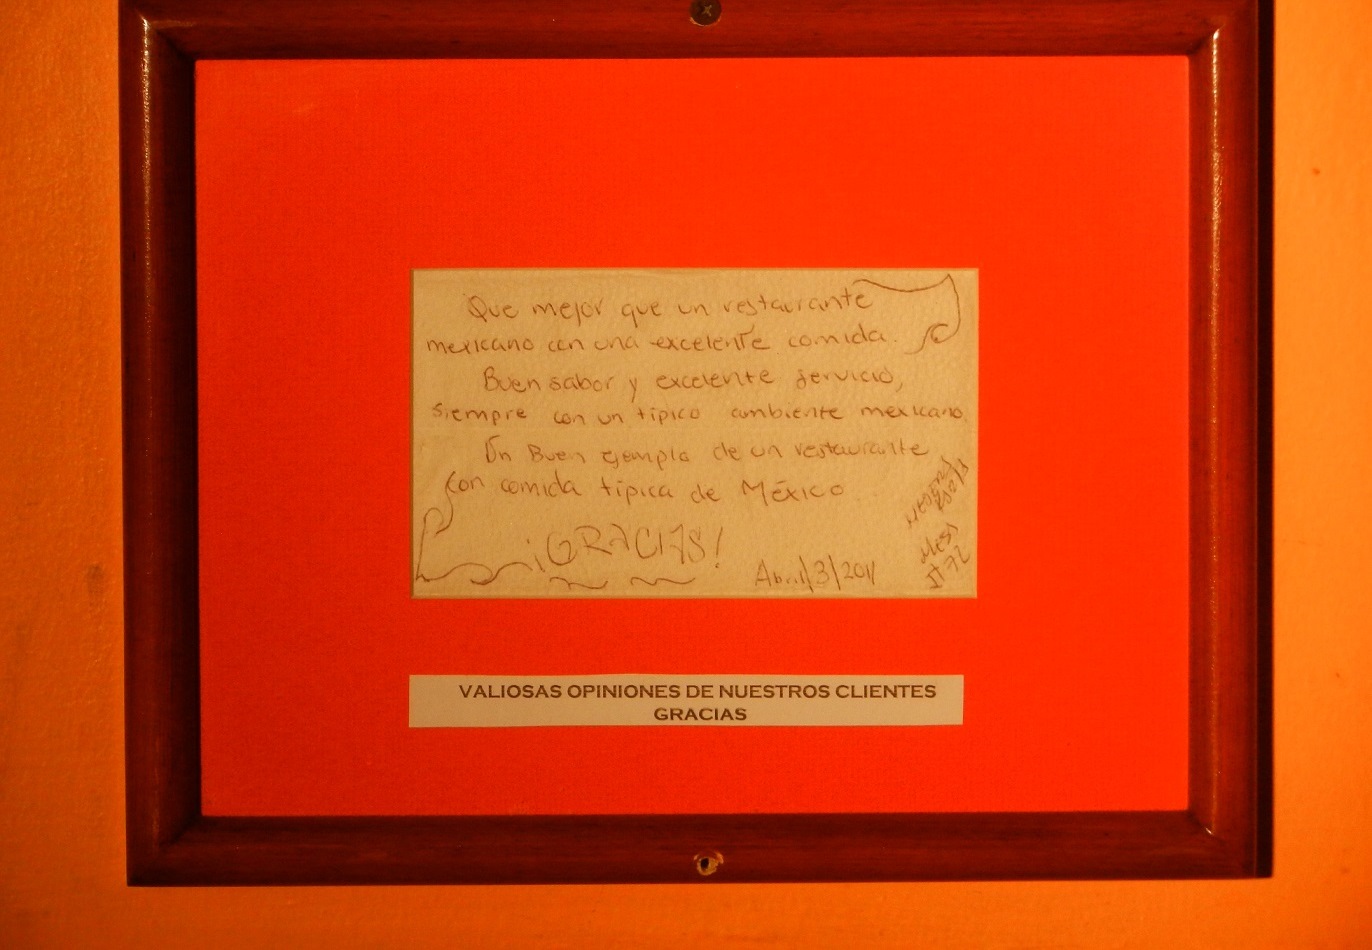 Que mejor que un restaurante
mexicano con una excelente comida.
Buen sabor y excelente servicio,
siempre con un típico ambiente mexicano
Un Buen ejemplo de un restaurante
con comida típica de México
¡GRACIAS!
Abril/3/2011
VALIOSAS OPINIONES DE NUESTROS CLIENTES
GRACIAS